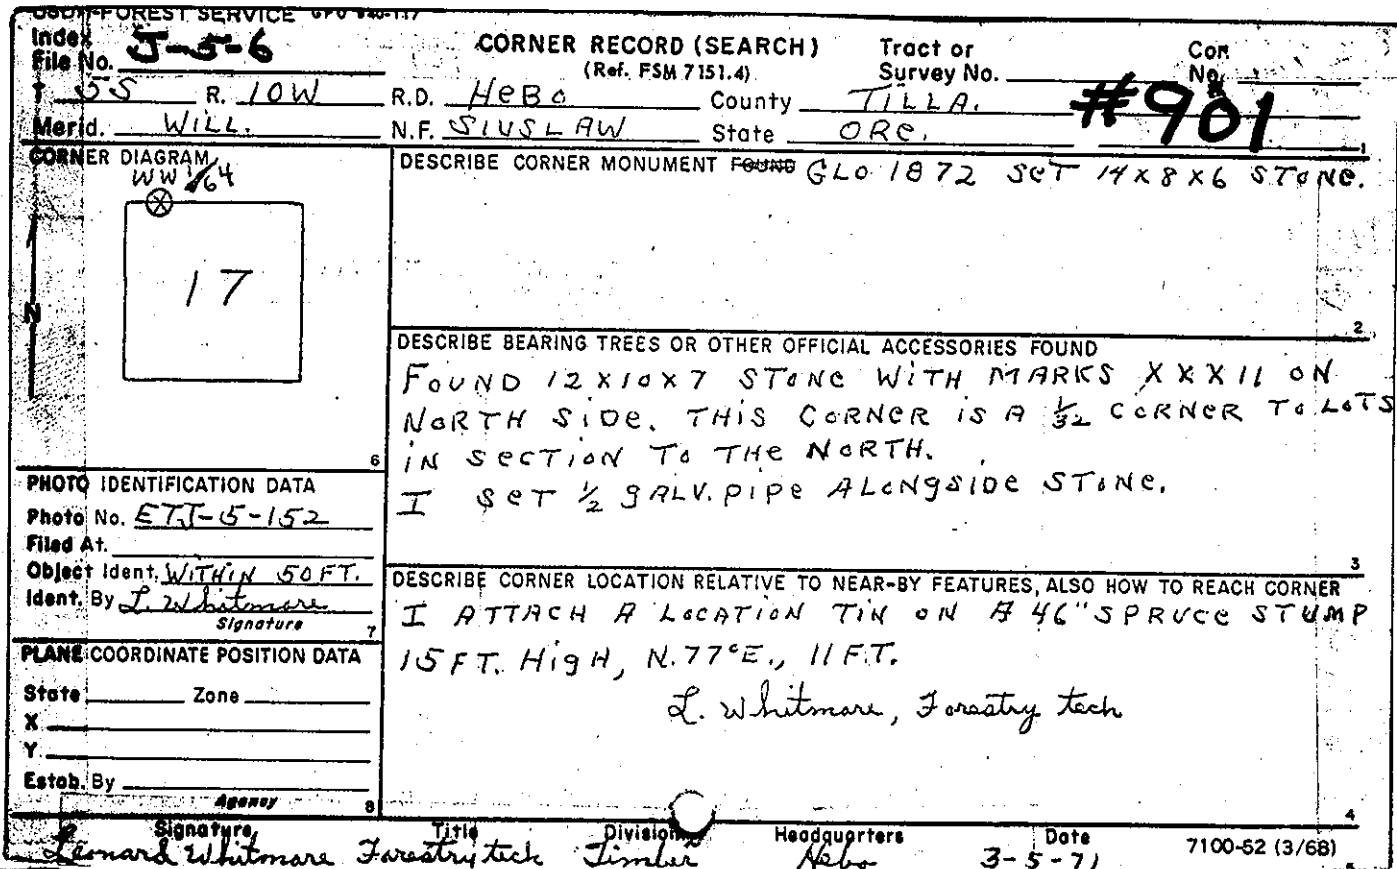 USDA-FOREST SERVICE GPO 940-117
Index File No. J-5-6
CORNER RECORD (SEARCH)
(Ref. FSM 7151.4)
Tract or Survey No.
Cor. No.
#901
T 5S R. 10W R.D. HEBO County TILLA.
Merid. WILL. N.F. SIUSLAW State ORE. 1
CORNER DIAGRAM
WW 1/64
17
N
6
DESCRIBE CORNER MONUMENT FOUND GLO 1872 SET 14 x 8 x 6 STONE.
2
DESCRIBE BEARING TREES OR OTHER OFFICIAL ACCESSORIES FOUND
FOUND 12 x 10 x 7 STONE WITH MARKS XXX11 ON
NORTH SIDE. THIS CORNER IS A 1/32 CORNER TO LOTS
IN SECTION TO THE NORTH.
I SET 1/2 GALV. PIPE ALONGSIDE STONE.
3
PHOTO IDENTIFICATION DATA
Photo No. ETJ-5-152
Filed At.
Object Ident. WITHIN 50 FT.
Ident. By L. Whitmore
Signature 7
DESCRIBE CORNER LOCATION RELATIVE TO NEAR-BY FEATURES, ALSO HOW TO REACH CORNER
I ATTACH A LOCATION TIN ON A 46" SPRUCE STUMP
15 FT. HIGH, N. 77°E., 11 FT.
L. Whitmore, Forestry tech
4
PLANE COORDINATE POSITION DATA
State Zone
X
Y
Estab. By
Agency 8
Signature Title Division Headquarters Date
Leonard Whitmore Forestry tech Timber Hebo 3-5-71
7100-52 (3/68)
5